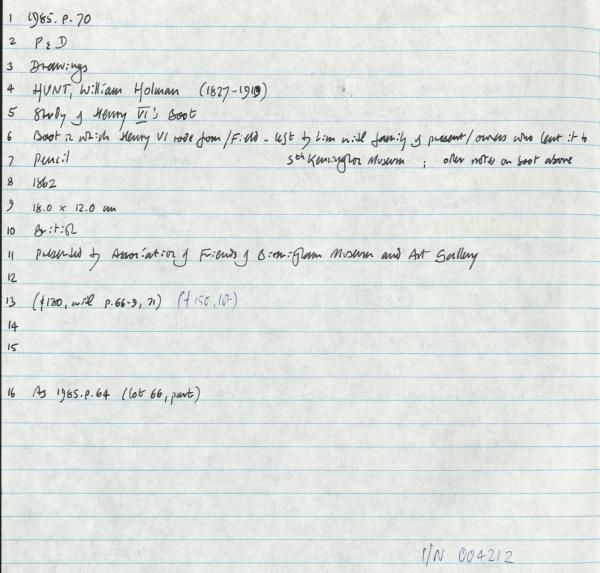 1 1985.P.70
2 P & D
3 Drawings
4 HUNT, William Holman (1827-1910)
5 Study of Henry VI's Boot
6 Boot in which Henry VI rode from / Field - left by him with family of present / owners who lent it to
7 Pencil Sth Kensington Museum ; other notes on boot above
8 1862
9 18.0 x 12.0 cm
10 British
11 Presented by Association of Friends of Birmingham Museum and Art Gallery
12
13 (£120, with P.66-9, 71) (£150,
14
15
16 As 1985.P.64 (lot 66, part)
I/N 004212